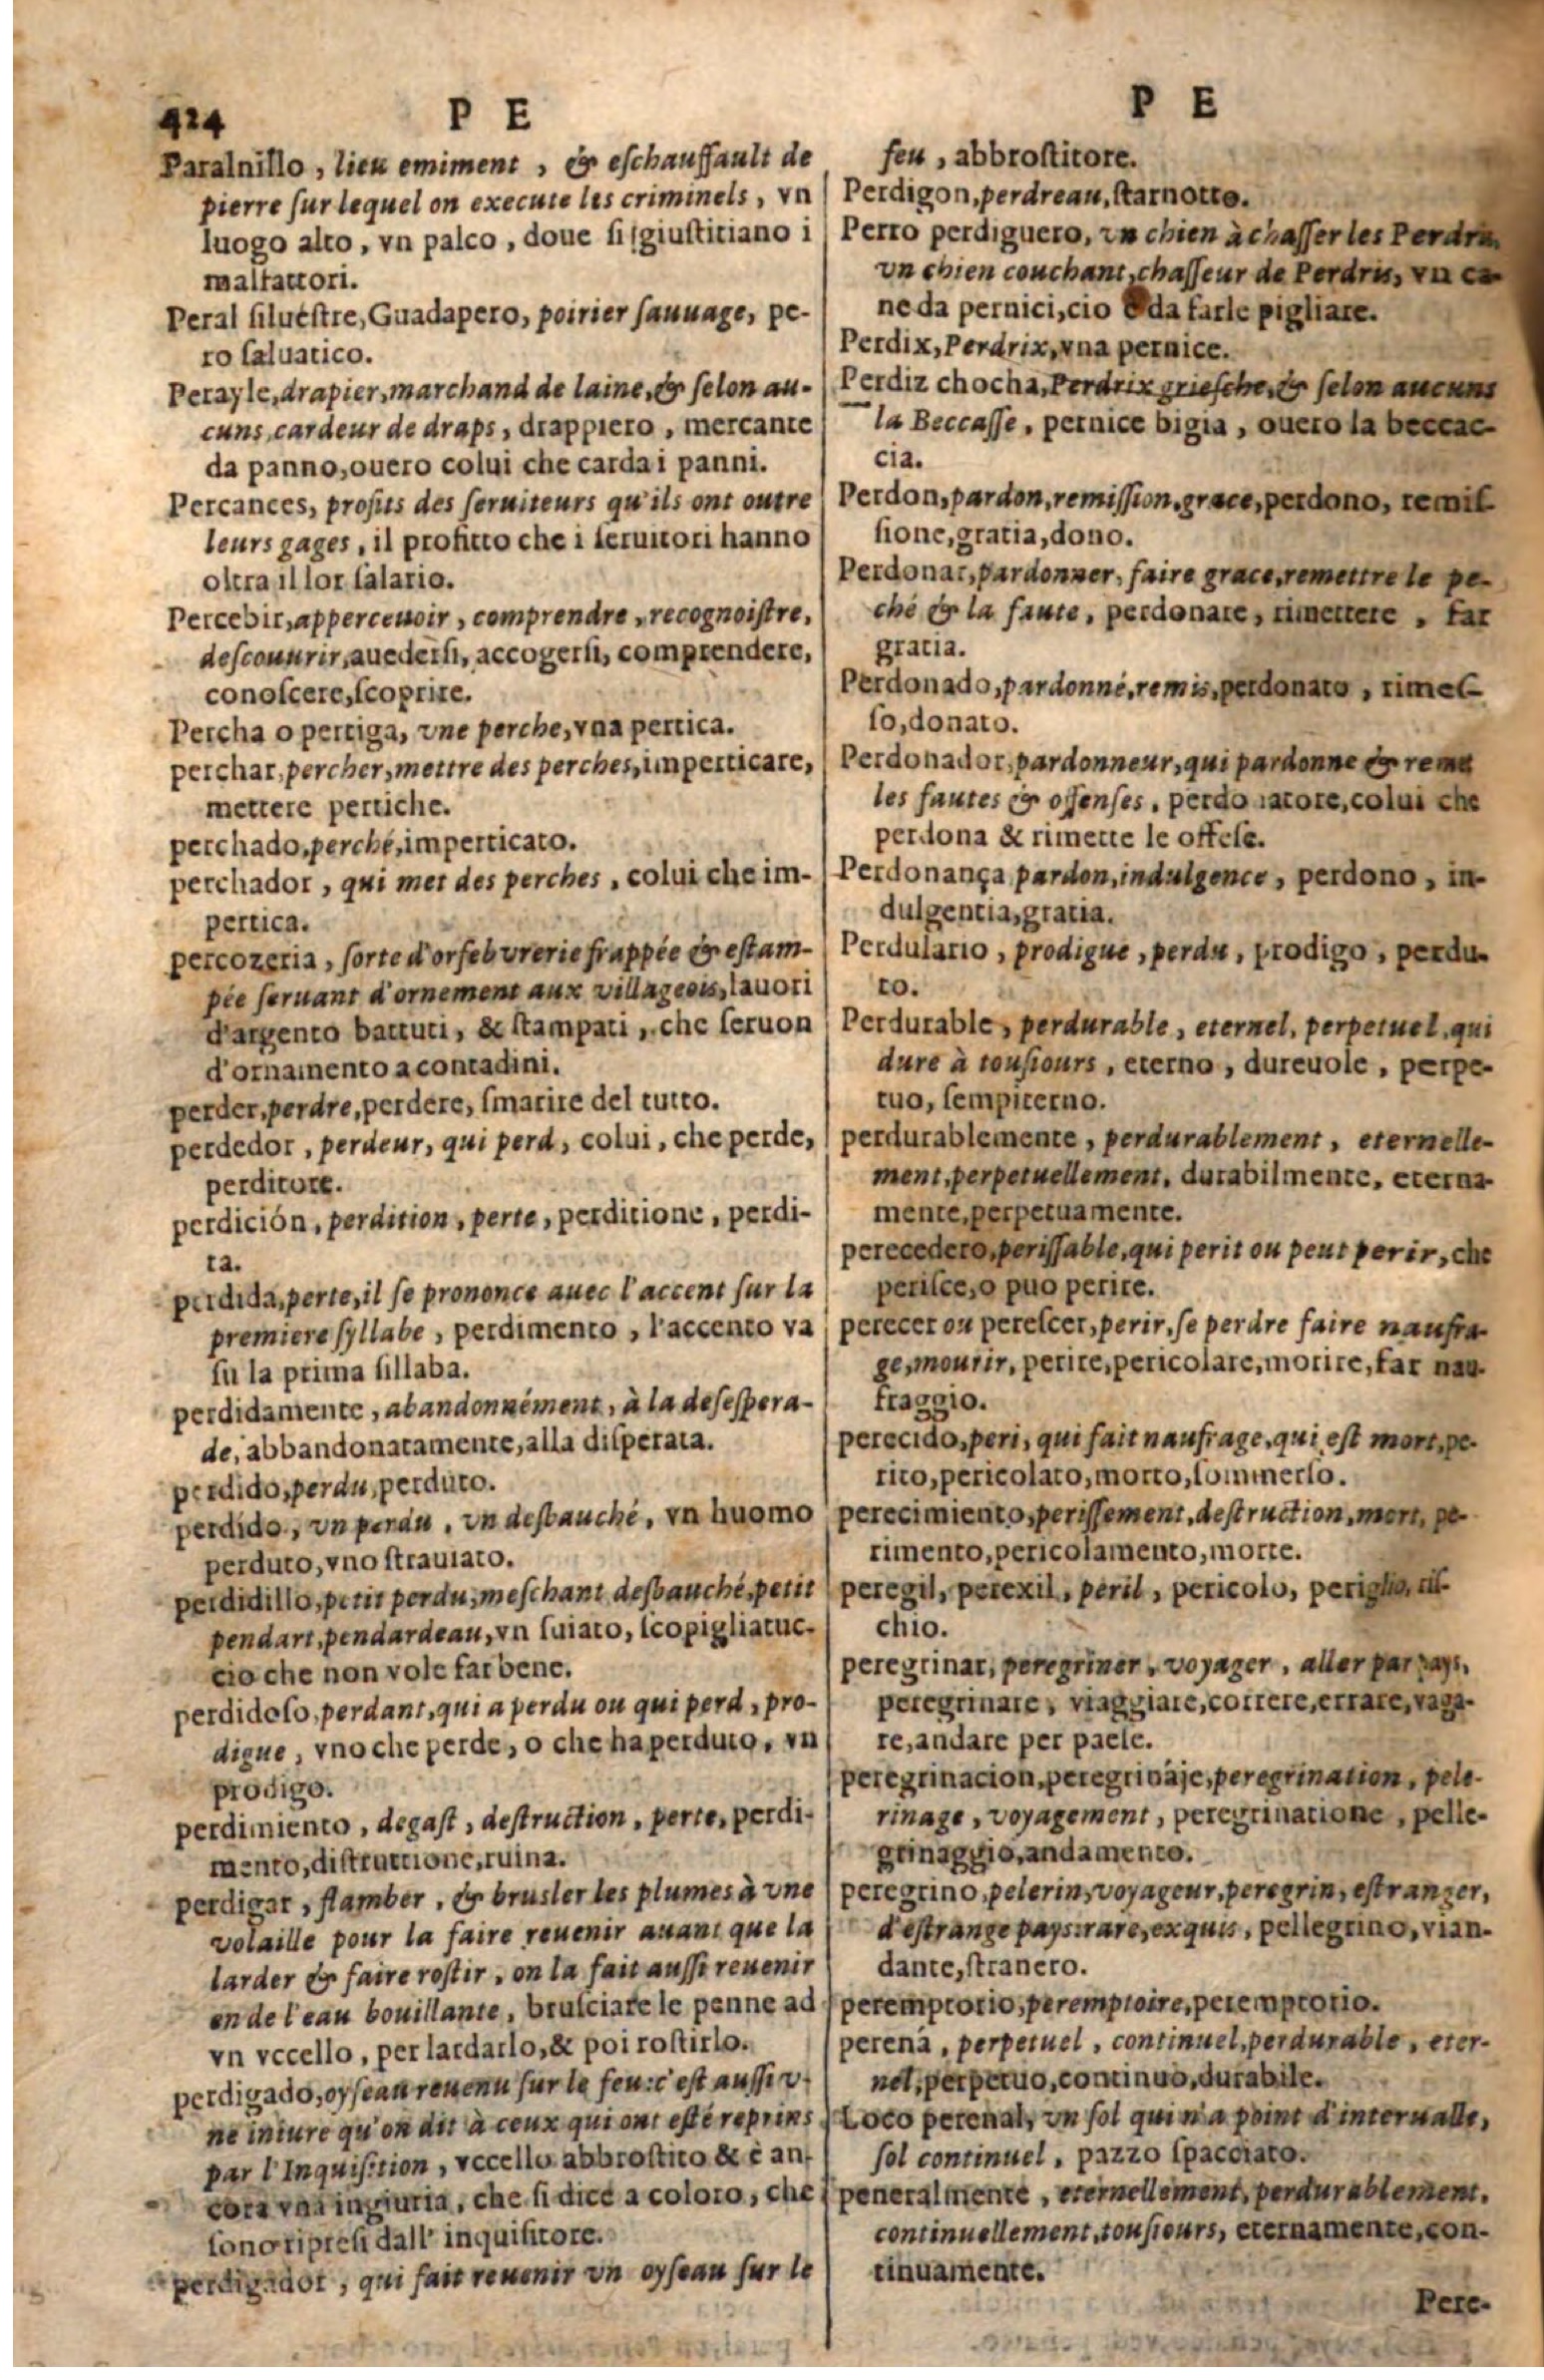 424 P E
Paralnillo, lieu emiment, & eſchauffault de
pierre ſur lequel on execute les criminels, vn
luogo alto, vn palco, doue ſi giuſtitiano i
malfattori.
Peral ſilueſtre, Guadapero, poirier ſauuage, pe-
ro ſaluatico.
Perayle, drapier, marchand de laine, & ſelon au-
cuns, cardeur de draps, drappiero, mercante
da panno, ouero colui che carda i panni.
Percances, profits des ſeruiteurs qu'ils ont outre
leurs gages, il profitto che i ſeruitori hanno
oltra il lor ſalario.
Percebir, apperceuoir, comprendre, recognoiſtre,
deſcouurir, auederſi, accogerſi, comprendere,
conoſcere, ſcoprire.
Percha o pertiga, vne perche, vna pertica.
perchar, percher, mettre des perches, imperticare,
mettere pertiche.
perchado, perché, imperticato.
perchador, qui met des perches, colui che im-
pertica.
percozeria, ſorte d'orfebvrerie frappée & eſtam-
pée ſeruant d'ornement aux villageois, lauori
d'argento battuti, & ſtampati, che ſeruon
d'ornamento a contadini.
perder, perdre, perdere, ſmarire del tutto.
perdedor, perdeur, qui perd, colui, che perde,
perditore.
perdición, perdition, perte, perditione, perdi-
ta.
perdida, perte, il ſe prononce auec l'accent ſur la
premiere ſyllabe, perdimento, l'accento va
ſu la prima ſillaba.
perdidamente, abandonnément, à la deſeſpera-
de, abbandonatamente, alla diſperata.
perdido, perdu, perduto.
perdido, vn perdu, vn deſbauché, vn huomo
perduto, vno ſtrauiato.
perdidillo, petit perdu, meſchant deſbauché, petit
pendart, pendardeau, vn ſuiato, ſcopigliatuc-
cio che non vole far bene.
perdidoſo, perdant, qui a perdu ou qui perd, pro-
digue, vno che perde, o che ha perduto, vn
prodigo.
perdimiento, degaſt, deſtruction, perte, perdi-
mento, diſtruttione, ruina.
perdigar, flamber, & bruſler les plumes à vne
volaille pour la faire reuenir auant que la
larder & faire roſtir, on la fait auſſi reuenir
en de l'eau bouillante, bruſciare le penne ad
vn vccello, per lardarlo, & poi roſtirlo.
perdigado, oyſeau reuenu ſur le feu: c'eſt auſſi v-
ne iniure qu'on dit à ceux qui ont eſté reprins
par l'Inquiſition, vccello abbroſtito & è an-
cora vna ingiuria, che ſi dice a coloro, che
ſono ripreſi dall' inquiſitore.
perdigador, qui fait reuenir vn oyſeau ſur le
P E
feu, abbroſtitore.
Perdigon, perdreau, ſtarnotto.
Perro perdiguero, vn chien à chaſſer les Perdris,
vn chien couchant, chaſſeur de Perdris, vn ca-
ne da pernici, cio è da farle pigliare.
Perdix, Perdrix, vna pernice.
Perdiz chocha, Perdrix grieſche, & ſelon aucuns
la Beccaſſe, pernice bigia, ouero la beccac-
cia.
Perdon, pardon, remiſſion, grace, perdono, remiſ-
ſione, gratia, dono.
Perdonar, pardonner, faire grace, remettre le pe-
ché & la faute, perdonare, rimettere, far
gratia.
Perdonado, pardonné, remis, perdonato, rimeſ-
ſo, donato.
Perdonador, pardonneur, qui pardonne & remet
les fautes & offenſes, perdonatore, colui che
perdona & rimette le offeſe.
Perdonança pardon, indulgence, perdono, in-
dulgentia, gratia.
Perdulario, prodigue, perdu, prodigo, perdu-
to.
Perdurable, perdurable, eternel, perpetuel, qui
dure à touſiours, eterno, dureuole, perpe-
tuo, ſempiterno.
perdurablemente, perdurablement, eternelle-
ment, perpetuellement, durabilmente, eterna-
mente, perpetuamente.
perecedero, periſſable, qui perit ou peut perir, che
periſce, o puo perire.
perecer ou pereſcer, perir, ſe perdre faire naufra-
ge, mourir, perire, pericolare, morire, far nau-
fraggio.
perecido, peri, qui fait naufrage, qui eſt mort, pe-
rito, pericolato, morto, ſommerſo.
perecimiento, periſſement, deſtruction, mort, pe-
rimento, pericolamento, morte.
peregil, perexil, peril, pericolo, periglio, riſ-
chio.
peregrinar, peregriner, voyager, aller par pays,
peregrinare, viaggiare, correre, errare, vaga-
re, andare per paeſe.
peregrinacion, peregrináje, peregrination, pele-
rinage, voyagement, peregrinatione, pelle-
grinaggio, andamento.
peregrino, pelerin, voyageur, peregrin, eſtranger,
d'eſtrange pays: rare, exquis, pellegrino, vian-
dante, ſtranero.
peremptorio, peremptoire, peremptorio.
perená, perpetuel, continuel, perdurable, eter-
nel, perpetuo, continuo, durabile.
Loco perenal, vn ſol qui n'a point d'interualle,
ſol continuel, pazzo ſpacciato.
peneralmente, eternellement, perdurablement,
continuellement, touſiours, eternamente, con-
tinuamente.
Pere-